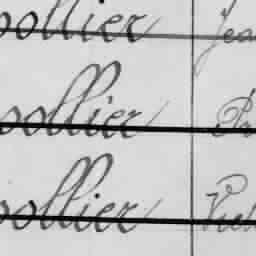 ollier Jea
ollier Pr
ollier Vict